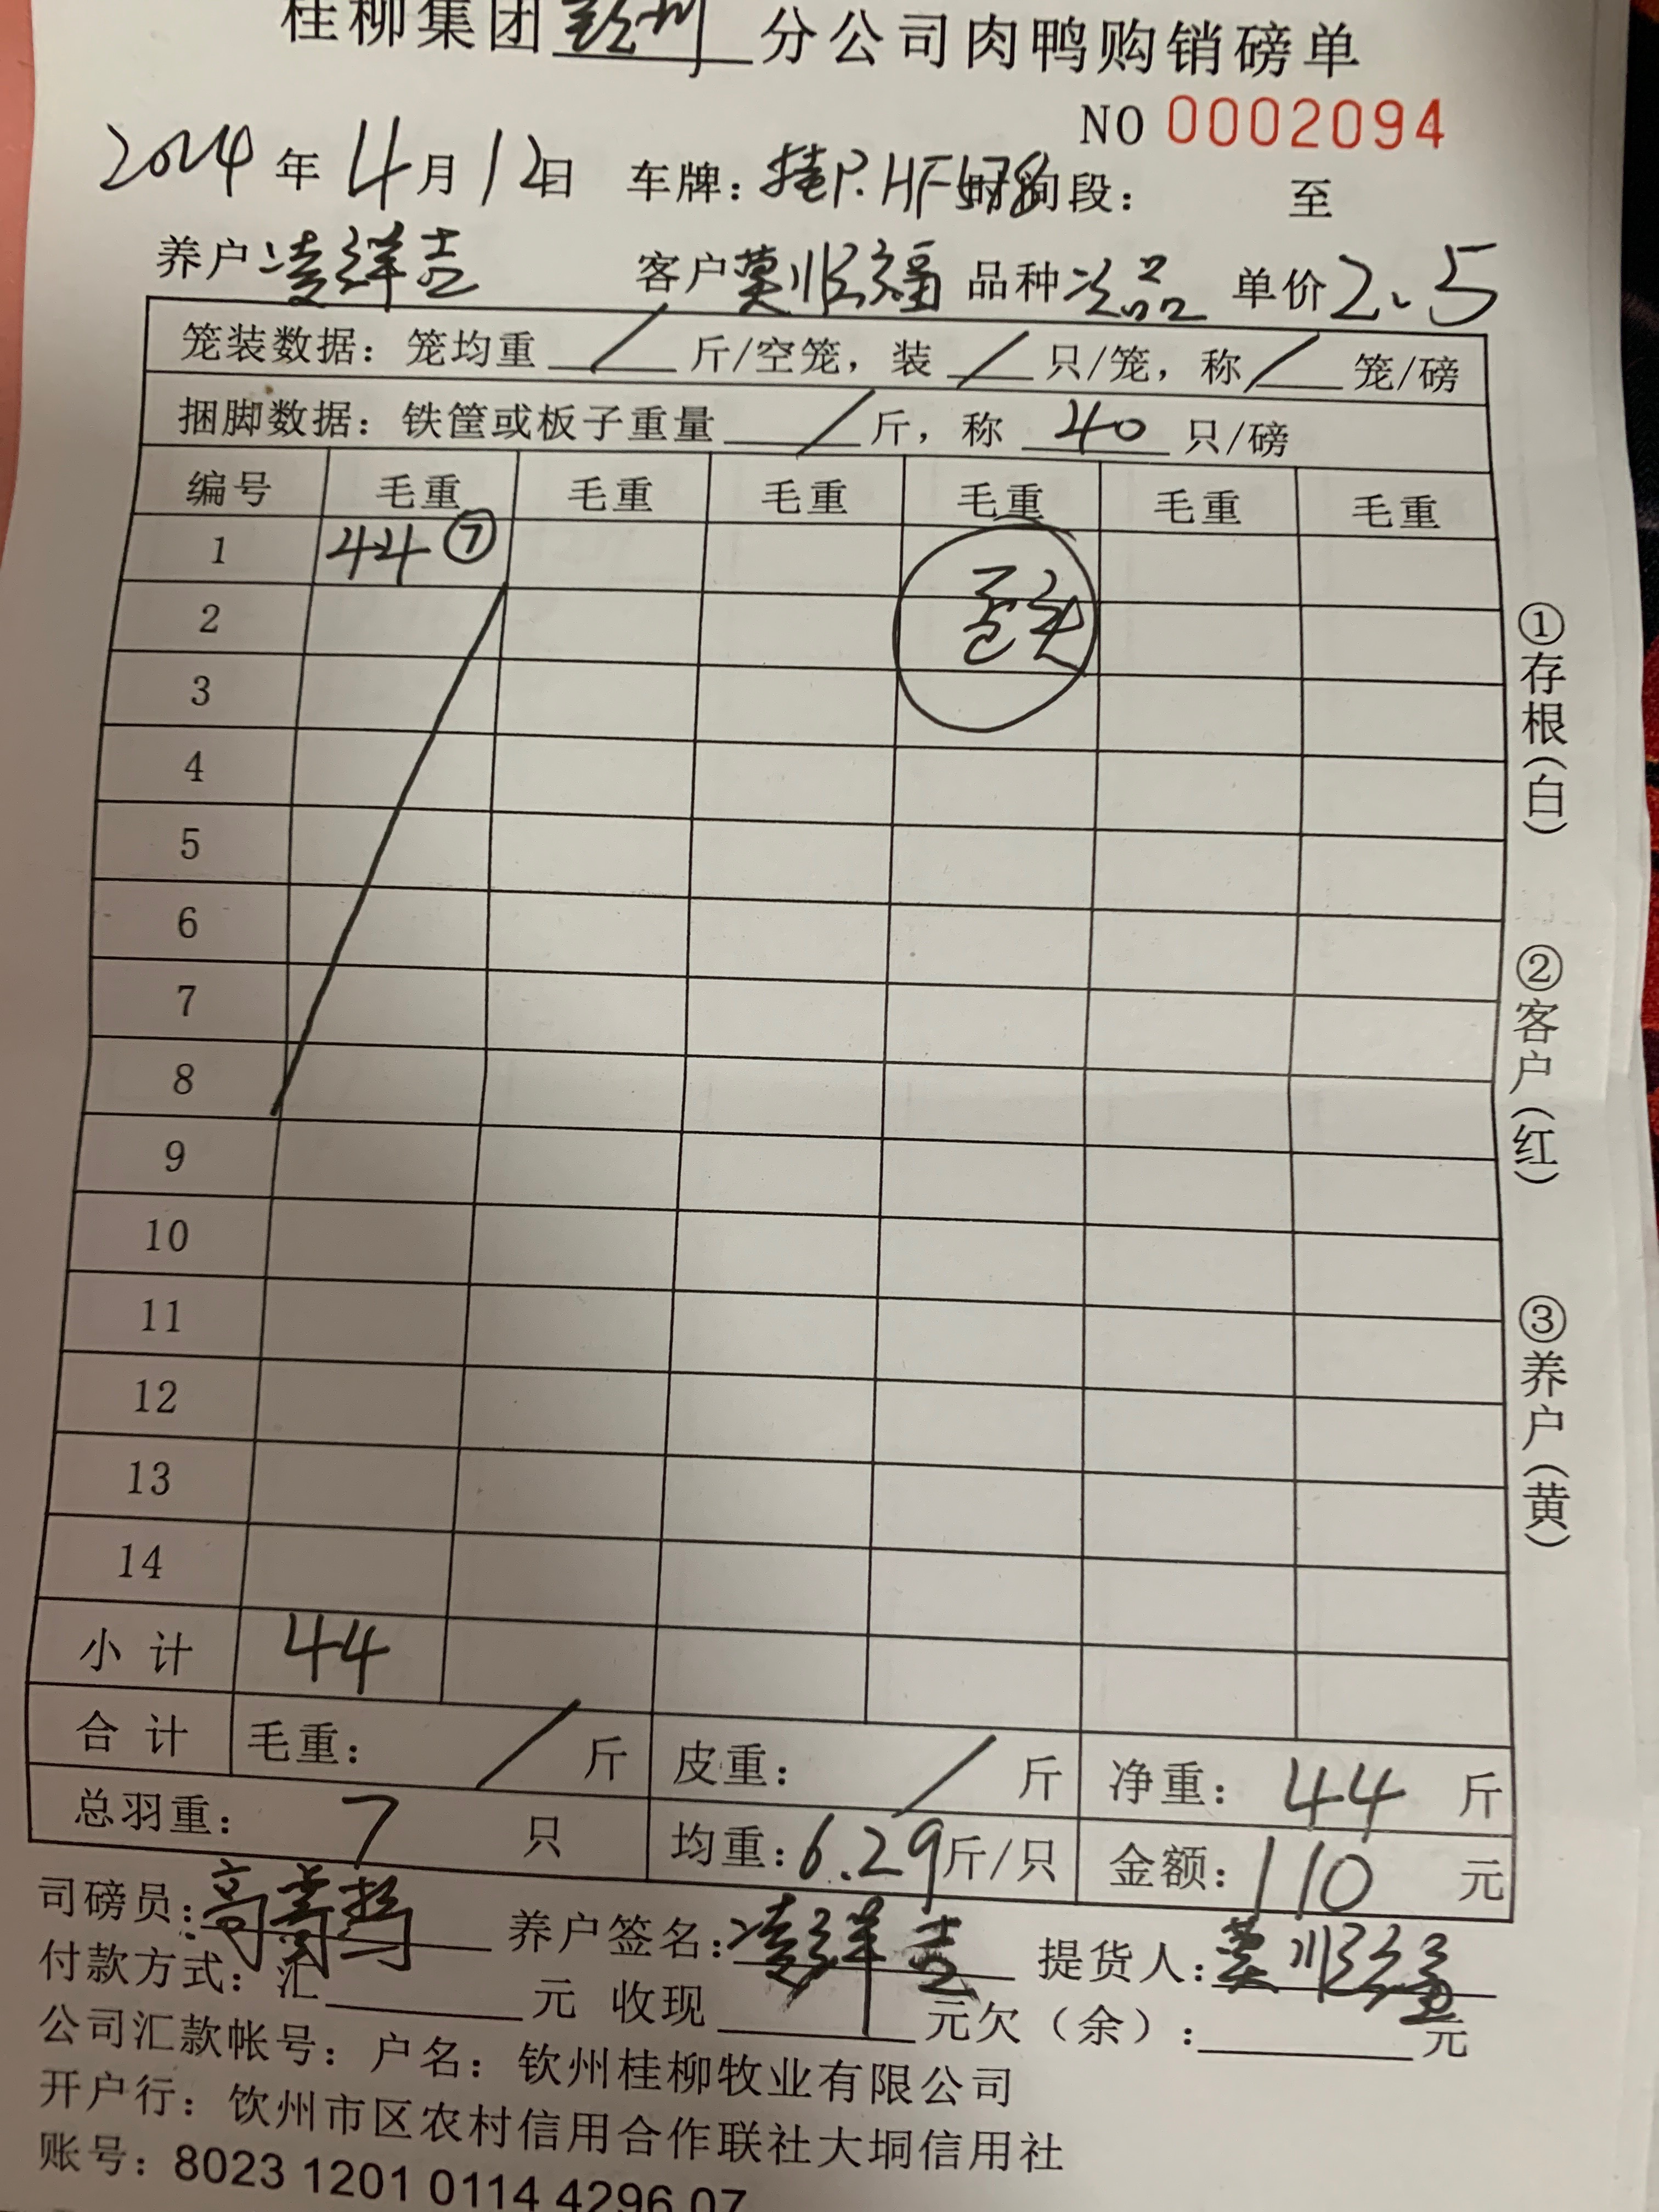 桂柳集团 分公司肉鸭购销磅单
NO 0002094
2024 年 4 月 12 日 车牌: 桂P.HF 时间段: 至
养户 凌祥吉 客户 莫顺福 品种 次品 单价 2.5
笼装数据: 笼均重 / 斤/空笼, 装 / 只/笼, 称 / 笼/磅
捆脚数据: 铁筐或板子重量 / 斤, 称 40 只/磅
编号 毛重 毛重 毛重 毛重 毛重 毛重
1 44 ⑦
2
3
4
5
6
7
8
9
10
11
12
13
14
小计 44
合计 毛重: / 斤 皮重: / 斤 净重: 44 斤
总羽重: 7 只 均重: 6.29 斤/只 金额: 110 元
司磅员: 养户签名: 凌祥吉 提货人: 莫顺福
付款方式: 汇 元 收现 元欠(余): 元
公司汇款帐号: 户名: 钦州桂柳牧业有限公司
开户行: 钦州市区农村信用合作联社大垌信用社
账号: 8023 1201 0114 4296 07
①存根(白)
②客户(红)
③养户(黄)